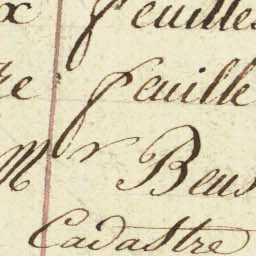 feuilles
feuille
Mr
Cadastre